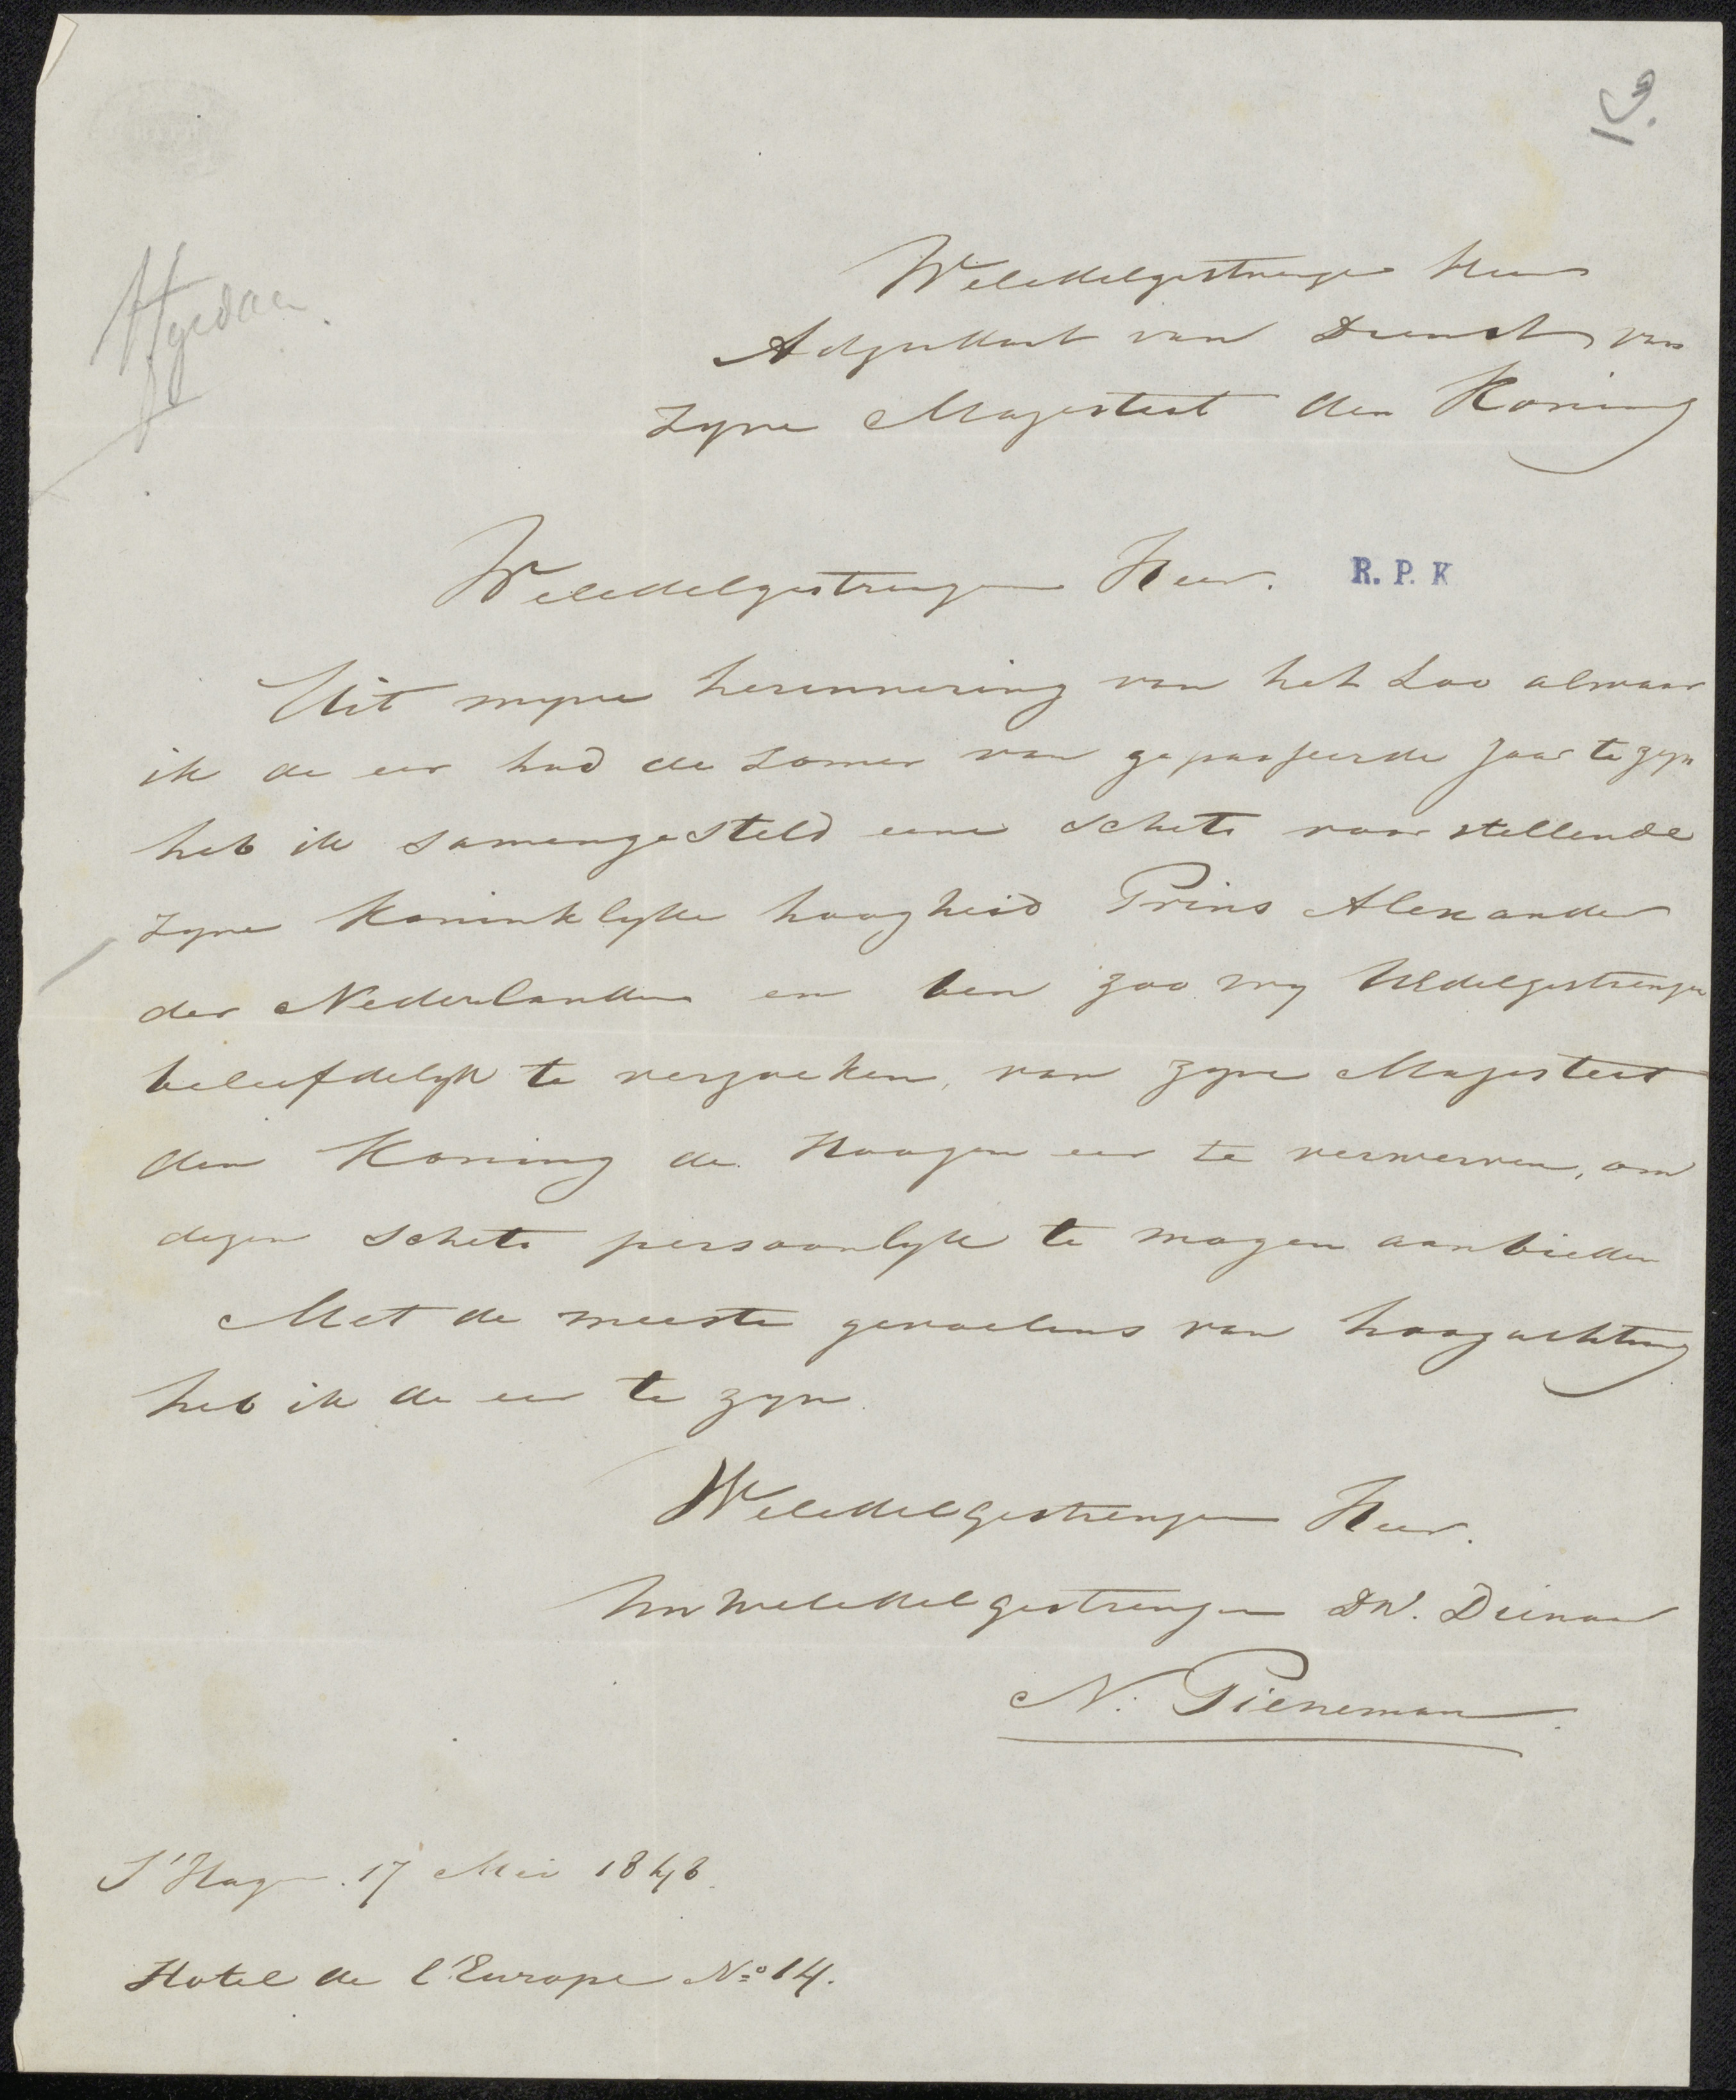 Weledelgestrenge Heer
Adjudant van Dienst van
Zyne Majesteit den Koning
Weledelgestrengen Heer. R. P. K
Uit myne herinnering van het Loo alwaar
ik de eer had de zomer van gepasseerde Jaar te zyn
heb ik samengesteld eene schets voorstellende
zyne Koninklyke hoogheid Prins Alexander
der Nederlanden en ben zoo vry UEdelgestrenge
beleefdelyk te verzoeken, van zyne Majesteit
den Koning de Hoogen eer te verwerven, om
dezen schets persoonlyk te mogen aanbieden
Met de meeste gevoelens van hoogachting
heb ik de eer te zyn
Weledelgestrengen Heer.
Uw Weledelgestrengen DW. Dienaar
N. Pieneman
S'Hage. 17 Mei 1848.
Hotel de l'Europe No 14.